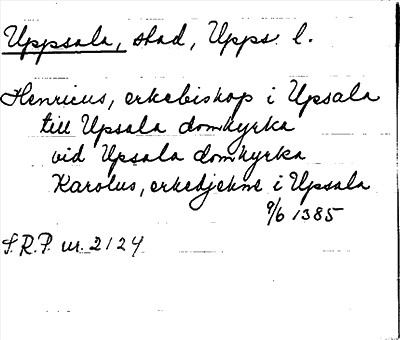 Uppsala, stad, Upps. l.
Henricus, erkebiskop i Upsala
till Upsala domkyrka
vid Upsala domkyrka
Karolus, erkedjekne i Upsala
9/6 1385
S.R.P. nr. 2124